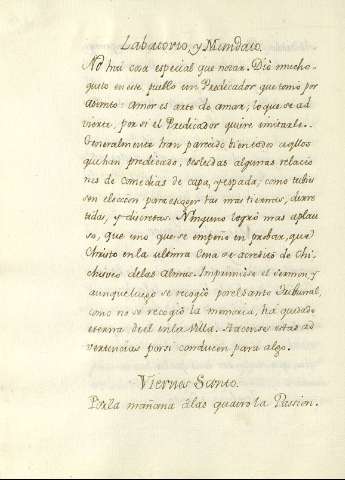 Labatorio, y Mandato.
No hai cosa especial que notar. Dió mucho
gusto en este pueblo un Predicador que tomo por
asunto: Amor es arte de amar; lo que se ad
vierte, por si el Predicador quiere imitarle.
Generalmente han parecido bien todos aqllos
que han predicado, texiedas algunas relacio
nes de comedias de capa, y espada; como tubie
sen eleccion para escoger las mas tiernas, derre
tidas, y discretas. Ninguno logró mas aplau
so, que uno que se empeño en probar, que
Christo en la ultima Cena se acreditó de Chi
chisveo de las Almas. Imprimiose el sermon, y
aunque luego se recogió por el Santo Tribunal,
como no se recogió la memoria, ha quedado
eterna de el en la Villa. Hacense estas ad
vertencias por si conducen para algo.
Viernes Santo.
Por la mañana á las quatro la Passion.